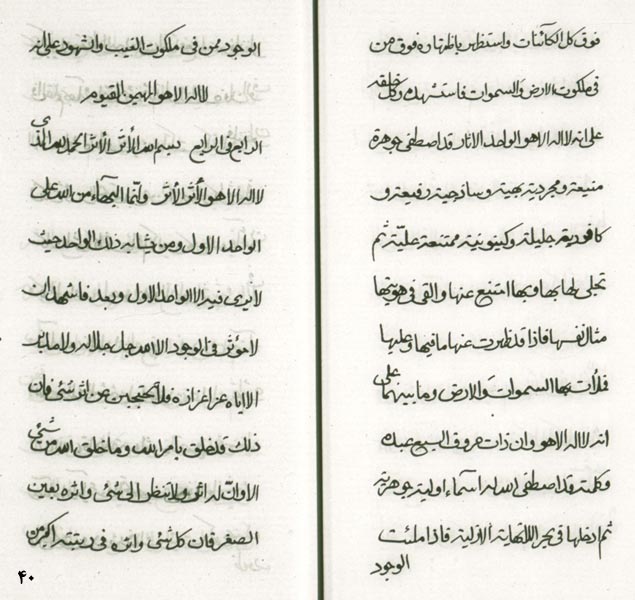 فوق كل الكآئنات واستظهر باظهاره فوق من
فى ملكوت الارض والسموات فاستشهده وكل خلقه
على انه لااله الاهو الواحد الاثار قد اصطفى جوهرة
منيعة ومجردية بهية وساذجية رفيعة و
كافورية جليلة وكينونية ممتنعة علية ثم
تجلى لها بها وبها امتنع عنها والقى فى هويتها
مثال نفسها فاذا قد ظهرت عنها ما فيها وعليها
فلات بها السموات والارض وما بينهما على
انه لااله الاهو وان ذات حروف السبع عبده
وكلمته قد اصطفى الله له اسمآء اولية جوهرية
ثم ادخلها فى بحر اللانهاية الازلية فاذا ملئت
الوجود
الوجود ممن فى ملكوت الغيب والشهود على انه
لااله الاهو المهيمن القيوم
الرابع فى الرابع بسم الله الأثر الأثر الحمد لله الذى
لااله الاهو الأثر الأثر وانما البهآء من الله على
الواحد الاول ومن يشابه ذلك الواحد حيث
لايرى فيه الا الواحد الاول وبعد فاشهد ان
لا مؤثر فى الوجود الا الله جل جلاله ولا مدبر
الا اياه عز اعزازه فلا تحتجبن عن اثر شئ فان
ذلك قد خلق بامر الله وما خلق الله من شئ
الا وان له اثر ولا تنظر الى شئ واثره بعين
الصغر فان كل شئ واثره فى رتبته اكبر من
۴۰